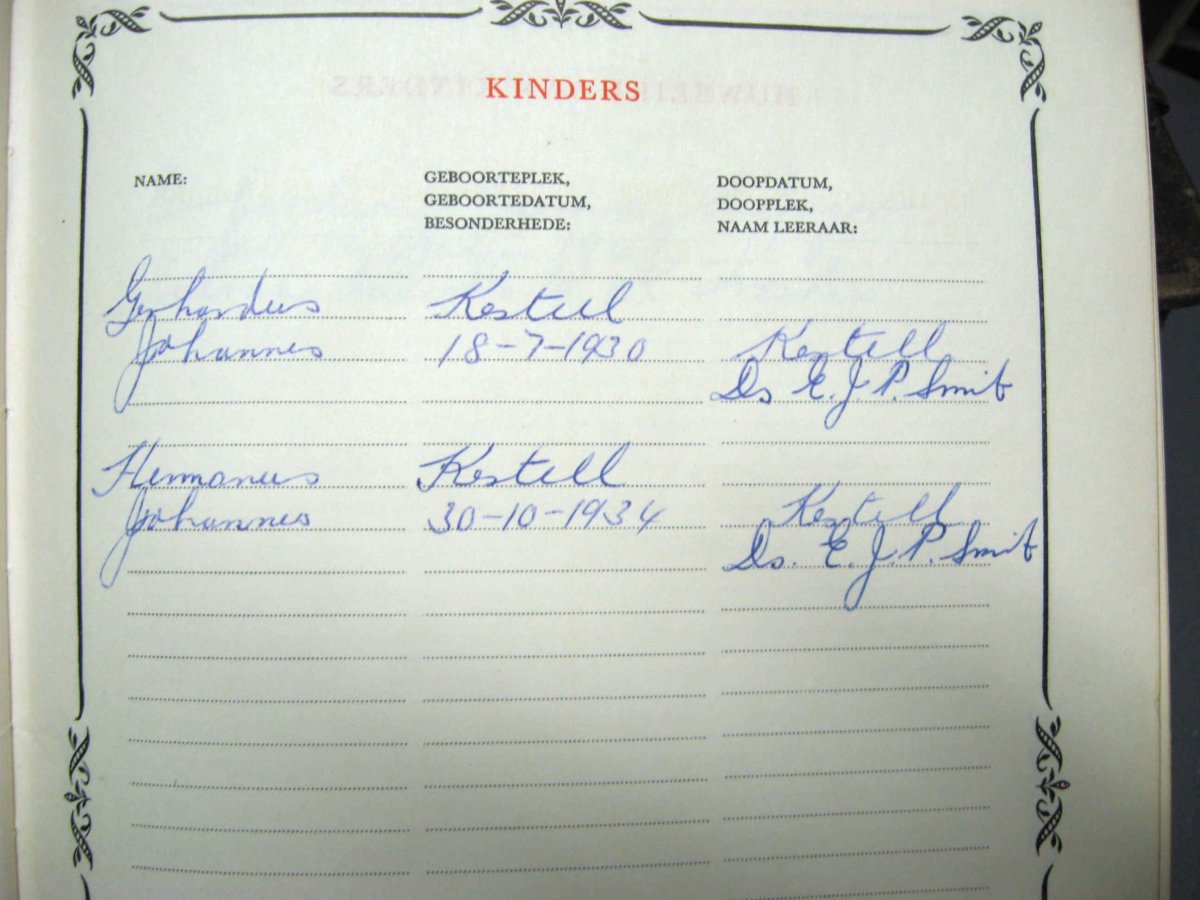 KINDERS
NAME:
GEBOORTEPLEK,
GEBOORTEDATUM,
BESONDERHEDE:
DOOPDATUM,
DOOPPLEK,
NAAM LEERAAR:
Gerhardus Kestell
Johannes 18-7-1930 Kestell
Ds E. J. P. Smit
Hermanus Kestell
Johannes 30-10-1934 Kestell
Ds. E. J. P. Smit